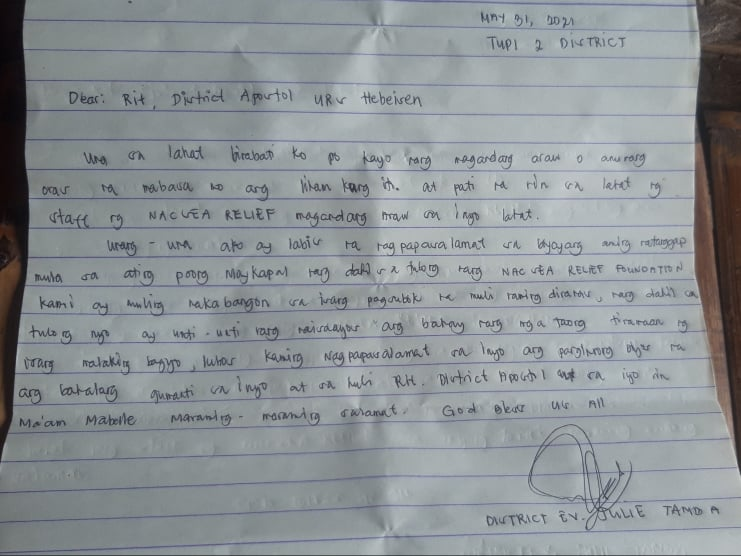 MAY 31, 2021
TUPI 2 DISTRICT
Dear: Rit, District Apostol URS Hebeisen
Una sa lahat binabati ko po kayo nang magandang araw o anumang
oras na mabasa nyo ang likan kung ito. at pati na rin sa lahat ng
staff ng NAC SEA RELIEF magandang araw sa inyo lahat.
Unang-una ako ay labis na nagpapasalamat sa biyayang aming natanggap
mula sa ating poong Maykapal nang dahil sa tulong nang NAC SEA RELIEF FOUNDATION
kami ay muling nakabangon sa isang pagsubok na muli naming dinanas, nang dahil sa
tulong nyo ay unti-unti nang naisaayos ang bahay nang mga taong tinamaan ng
isang malaking bagyo, lubos kaming Nagpapasalamat sa inyo ang panginoong Diyos na
ang bahalang gumanti sa inyo at sa huli Rit. District Apostol sa iyo din
Ma'am Mabelle Maraming-maraming salamat. God Bless Us All
DISTRICT EV. JULIE TAMDA